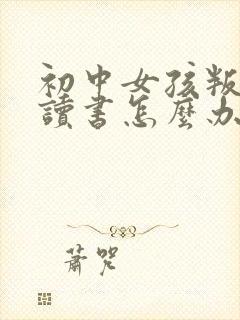 初中女孩叛
讀書怎麼办
蕭咒